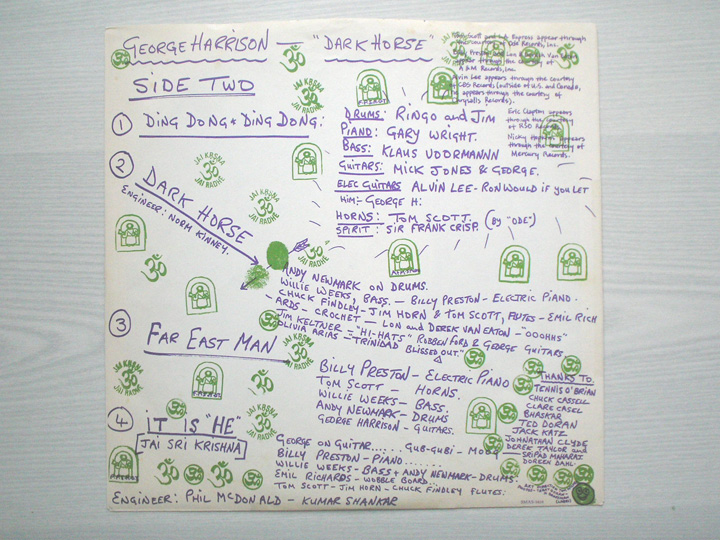 GEORGE HARRISON — "DARK HORSE"
SIDE TWO
① DING DONG * DING DONG:
DRUMS: RINGO and JIM
PIANO: GARY WRIGHT.
BASS: KLAUS VOORMANNN
GUITARS: MICK JONES & GEORGE.
ELEC GUITARS ALVIN LEE - RON WOULD IF YOU LET
HIM:- GEORGE H:
HORNS: TOM SCOTT. (BY "ODE")
SPIRIT: SIR FRANK CRISP.
appear through
A&M Records, Inc.
Alvin Lee appears through the courtesy
of CBS Records (outside of U.S. and Canada,
appears through the courtesy of
Records).
Eric Clapton appears
through the courtesy
of RSO Records.
Nicky Hopkins appears
through the courtesy of
Mercury Records.
② DARK HORSE
ENGINEER: NORM KINNEY.
JAI KRSNA
ॐ
JAI RADHE
ANDY NEWMARK ON DRUMS.
WILLIE WEEKS, BASS. — BILLY PRESTON - ELECTRIC PIANO.
CHUCK FINDLEY - JIM HORN & TOM SCOTT, FLUTES - EMIL RICH
-ARDS - CROCHET — LON and DEREK VAN EATON - "OOOHHS"
JIM KELTNER = "HI-HATS" ROBBEN FORD & GEORGE GUITARS
OLIVIA ARIAS = "TRINIDAD BLISSED OUT."
③ FAR EAST MAN
BILLY PRESTON - ELECTRIC PIANO
TOM SCOTT — HORNS.
WILLIE WEEKS - BASS.
ANDY NEWMARK - DRUMS
GEORGE HARRISON - GUITARS.
④ IT IS "HE"
JAI SRI KRISHNA
GEORGE ON GUITAR..... GUB-GUBI - MOOG
BILLY PRESTON - PIANO......
WILLIE WEEKS - BASS + ANDY NEWMARK - DRUMS.
EMIL RICHARDS - WOBBLE BOARD...
TOM SCOTT - JIM HORN - CHUCK FINDLEY FLUTES.
ENGINEER: PHIL MCDONALD - KUMAR SHANKAR
THANKS TO.
TENNIS O'BRIAN
CHUCK CASSELL
CLARE CASEL
BHASKAR
TED DORAN
JACK KATZ
JOHNATHAN CLYDE
DEREK TAYLOR and
SRIPAD MAHARAJ
DOREEN DAHL